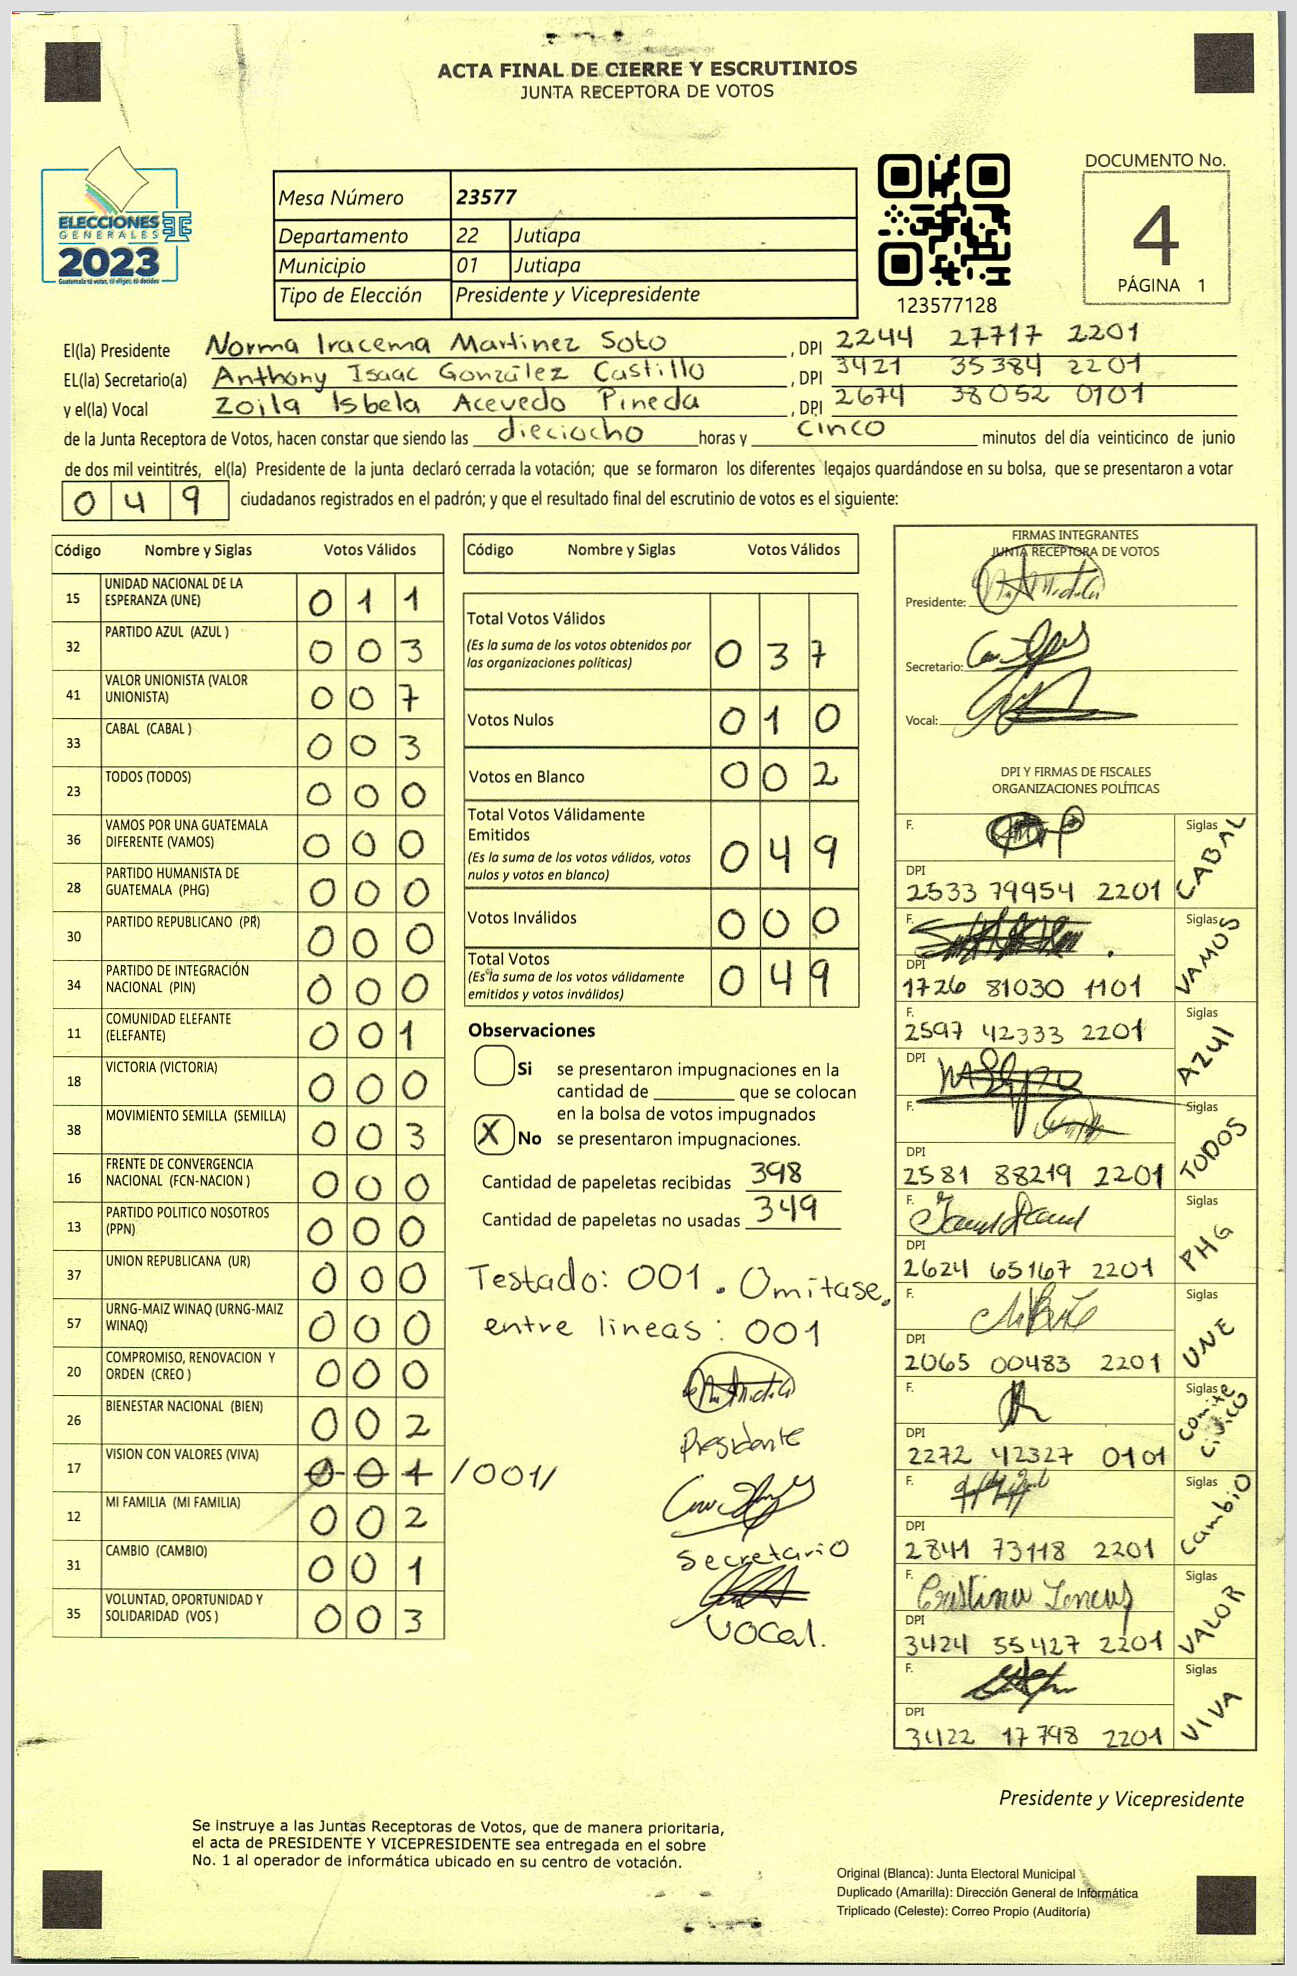 ACTA FINAL DE CIERRE Y ESCRUTINIOS
JUNTA RECEPTORA DE VOTOS
ELECCIONES
GENERALES
2023
Guatemala tú votas, tú eliges, tú decides
Mesa Número 23577
Departamento 22 Jutiapa
Municipio 01 Jutiapa
Tipo de Elección Presidente y Vicepresidente
123577128
DOCUMENTO No.
4
PÁGINA 1
El(la) Presidente Norma Iracema Martinez Soto, DPI 2244 27717 2201
EL(la) Secretario(a) Anthony Isaac González Castillo, DPI 3421 35384 2201
y el(la) Vocal Zoila Isbela Acevedo Pineda, DPI 2674 38052 0101
de la Junta Receptora de Votos, hacen constar que siendo las dieciocho horas y cinco minutos del día veinticinco de junio
de dos mil veintitrés, el(la) Presidente de la junta declaró cerrada la votación; que se formaron los diferentes legajos quardándose en su bolsa, que se presentaron a votar
049 ciudadanos registrados en el padrón; y que el resultado final del escrutinio de votos es el siguiente:
Código Nombre y Siglas Votos Válidos
15 UNIDAD NACIONAL DE LA ESPERANZA (UNE) 011
32 PARTIDO AZUL (AZUL ) 003
41 VALOR UNIONISTA (VALOR UNIONISTA) 007
33 CABAL (CABAL ) 003
23 TODOS (TODOS) 000
36 VAMOS POR UNA GUATEMALA DIFERENTE (VAMOS) 000
28 PARTIDO HUMANISTA DE GUATEMALA (PHG) 000
30 PARTIDO REPUBLICANO (PR) 000
34 PARTIDO DE INTEGRACIÓN NACIONAL (PIN) 000
11 COMUNIDAD ELEFANTE (ELEFANTE) 001
18 VICTORIA (VICTORIA) 000
38 MOVIMIENTO SEMILLA (SEMILLA) 003
16 FRENTE DE CONVERGENCIA NACIONAL (FCN-NACION ) 000
13 PARTIDO POLITICO NOSOTROS (PPN) 000
37 UNION REPUBLICANA (UR) 000
57 URNG-MAIZ WINAQ (URNG-MAIZ WINAQ) 000
20 COMPROMISO, RENOVACION Y ORDEN (CREO ) 000
26 BIENESTAR NACIONAL (BIEN) 002
17 VISION CON VALORES (VIVA) 001 /001/
12 MI FAMILIA (MI FAMILIA) 002
31 CAMBIO (CAMBIO) 001
35 VOLUNTAD, OPORTUNIDAD Y SOLIDARIDAD (VOS ) 003
Código Nombre y Siglas Votos Válidos
Total Votos Válidos 037
(Es la suma de los votos obtenidos por
las organizaciones políticas)
Votos Nulos 010
Votos en Blanco 002
Total Votos Válidamente
Emitidos 049
(Es la suma de los votos válidos, votos
nulos y votos en blanco)
Votos Inválidos 000
Total Votos 049
(Es la suma de los votos válidamente
emitidos y votos inválidos)
Observaciones
Si se presentaron impugnaciones en la
cantidad de ________ que se colocan
en la bolsa de votos impugnados
X No se presentaron impugnaciones.
Cantidad de papeletas recibidas 398
Cantidad de papeletas no usadas 349
Testado: 001. Omitase.
entre lineas: 001
Presidente
Secretario
Vocal.
FIRMAS INTEGRANTES
JUNTA RECEPTORA DE VOTOS
Presidente:
Secretario:
Vocal:
DPI Y FIRMAS DE FISCALES
ORGANIZACIONES POLÍTICAS
F. Siglas CABAL
DPI
2533 79954 2201
F. Siglas VAMOS
DPI
1726 81030 1101
F. Siglas AZUl
2597 42333 2201
DPI
F. Siglas TODOS
DPI
2581 88219 2201
F. Siglas PHG
DPI
2624 65167 2201
F. Siglas UNE
DPI
2065 00483 2201
F. Siglas Comite Civico
DPI
2272 42327 0101
F. Siglas Cambio
DPI
2841 73118 2201
F. Cristina Siglas VALOR
DPI
3424 55427 2201
F. Siglas VIVA
DPI
3422 17798 2201
Presidente y Vicepresidente
Se instruye a las Juntas Receptoras de Votos, que de manera prioritaria,
el acta de PRESIDENTE Y VICEPRESIDENTE sea entregada en el sobre
No. 1 al operador de informática ubicado en su centro de votación.
Original (Blanca): Junta Electoral Municipal
Duplicado (Amarilla): Dirección General de Informática
Triplicado (Celeste): Correo Propio (Auditoría)